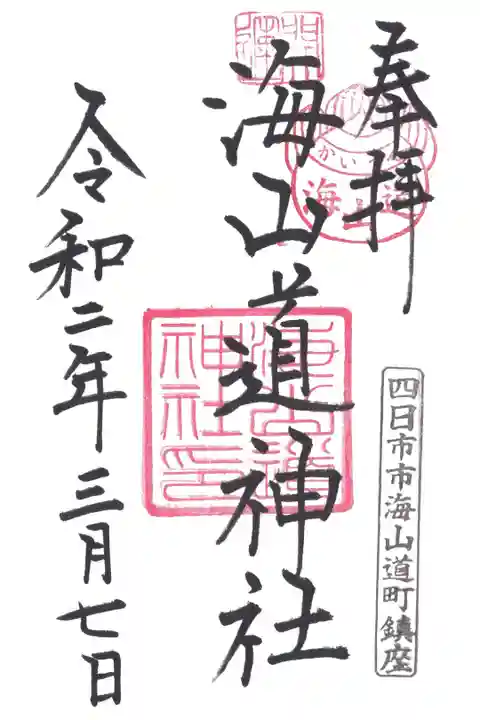 奉拝
かい
海山道
四日市市海山道町鎮座
海山道神社
海山道神社印
令和二年三月七日